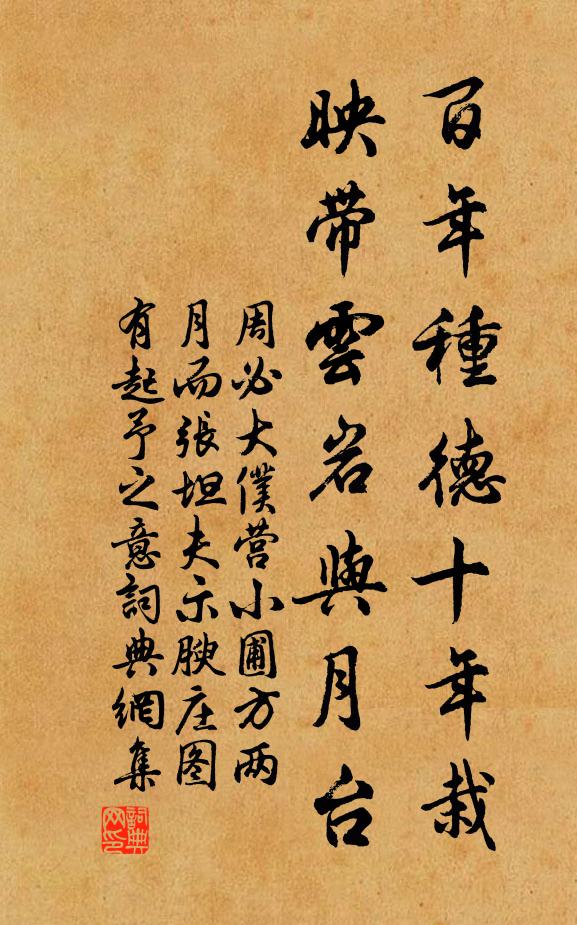 百年種德十年栽
映带雲岩與月台
周必大僕营小圃方两
月而張坦夫示腴庄图
有起予之意詞典網集
詞典网印